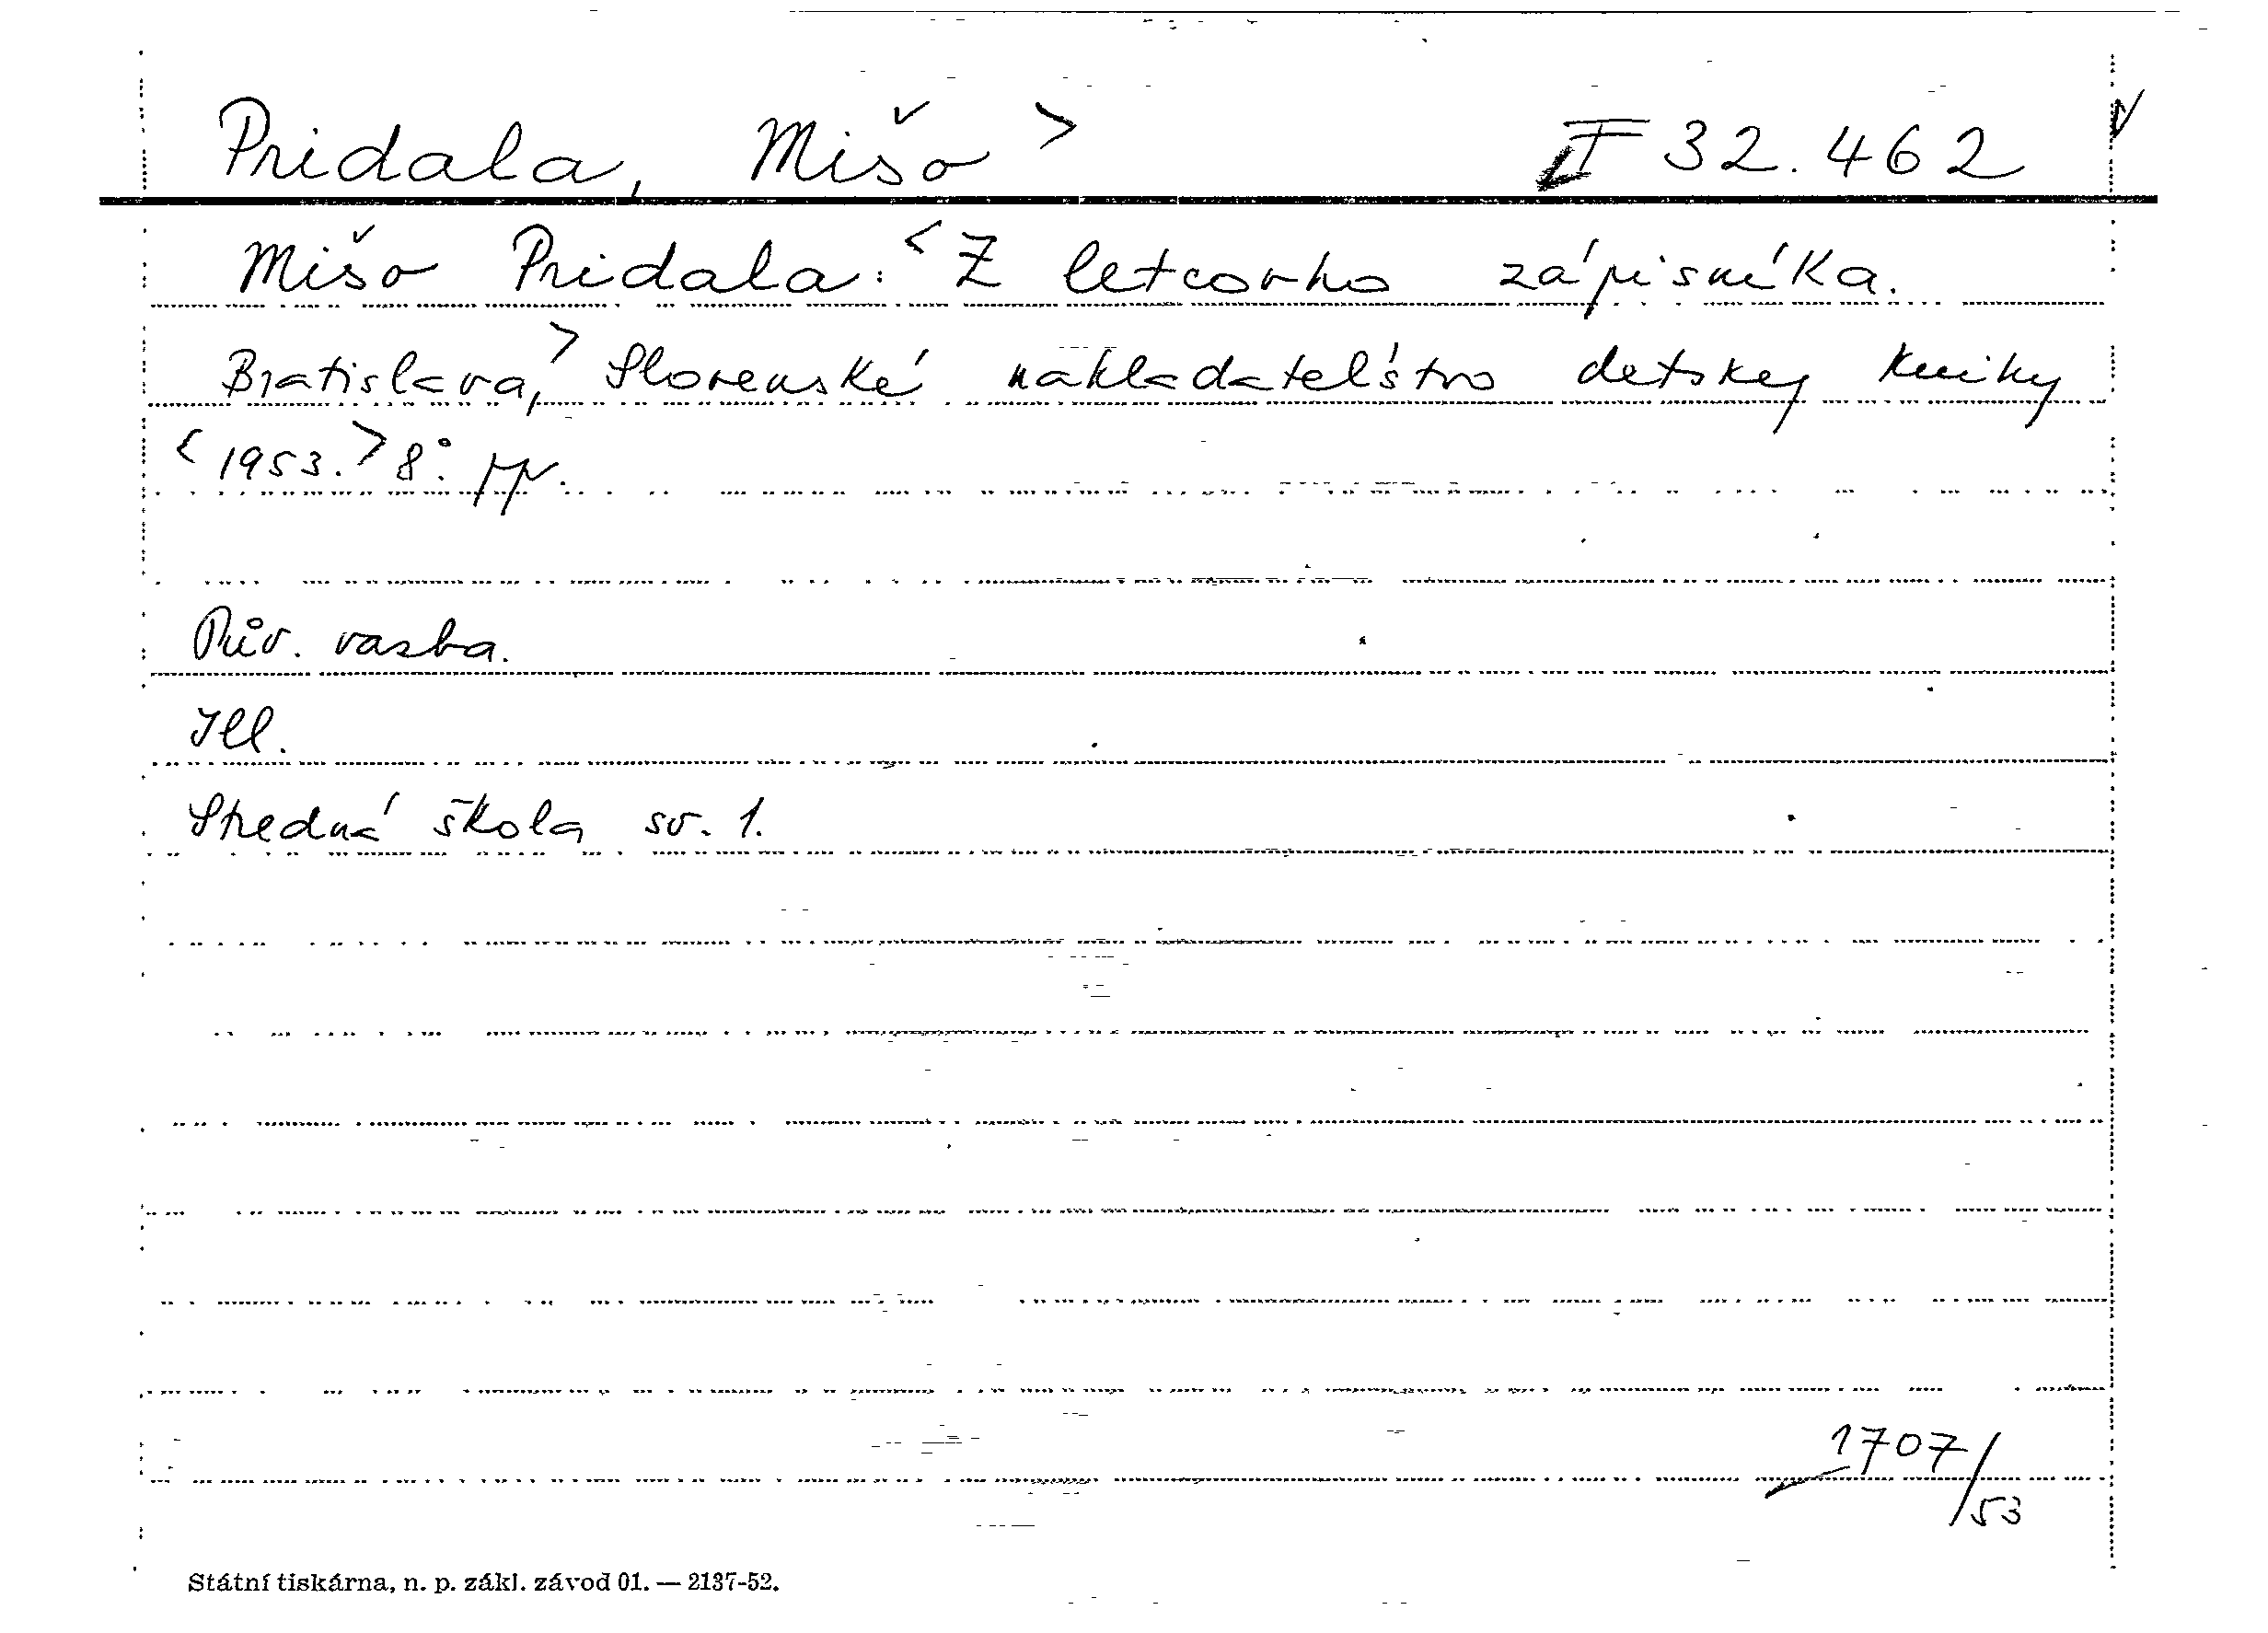 Pridala, Mišo > II 32.462
Mišo Pridala: < Z letcovho zápisníka.
Bratislava, > Slovenské nakladatelštvo detskej knihy
< 1953. > 8°.
Pův. vazba.
Ill.
Stredná škola sv. 1.
1707/53
Státní tiskárna, n. p. zákl. závod 01. — 2137-52.